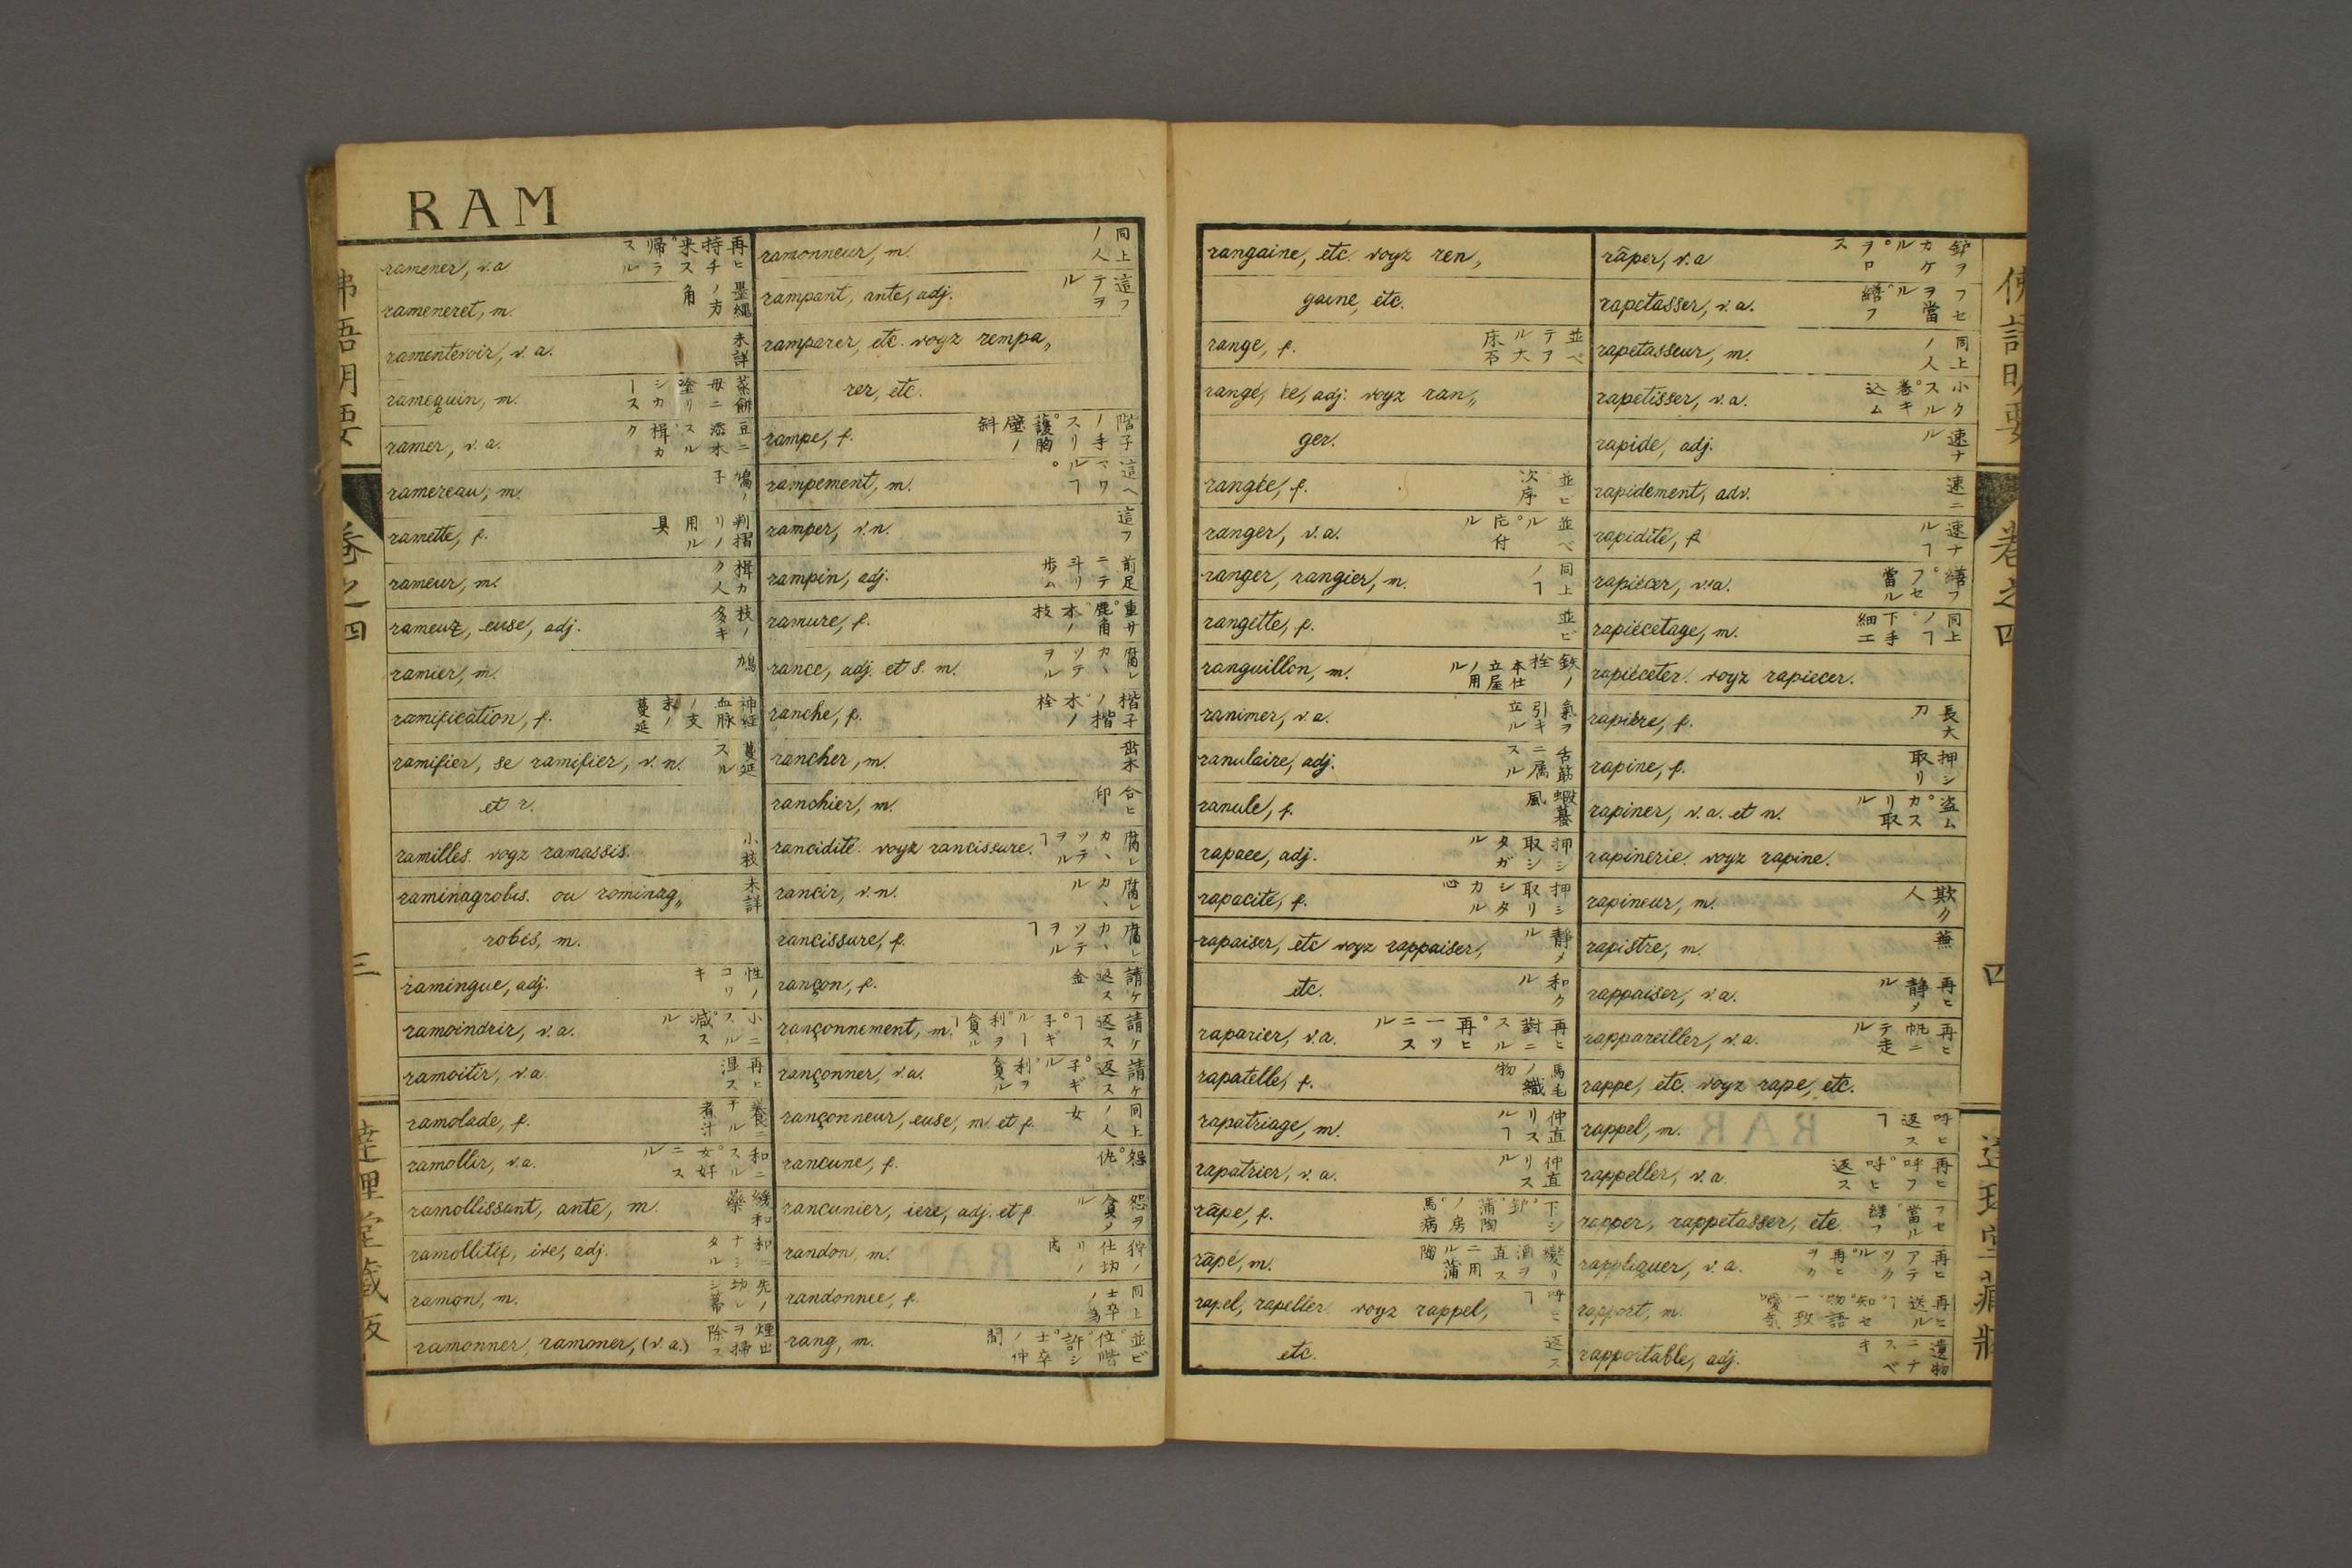 RAM
ramener, v.a. 再ヒ持チ来ス帰ラスル
rameneret, m. 墨縄ノ方角
ramentevoir, v.a. 未詳
ramequin, m.
ramer, v.a. 豆ニ添木スル楫カク
ramereau, m. 鳩ノ子
ramette, f. 判摺リノ用ル具
rameur, m. 楫カク人
rameux, euse, adj. 枝ノ多キ
ramier, m. 鳩
ramification, f. 神経血脉ノ支末ノ蔓延
ramifier, se ramifier, v.n. 蔓延スル
et r.
ramilles. voyz ramassis. 小枝
raminagrobis. ou rominag„ 未詳
robis, m.
ramingue, adj. 性ノコワキ
ramoindrir, v.a. 小ニスル減スル
ramoitir, v.a. 再ヒ湿ス
ramolade, f.
ramollir, v.a. 和ニスル女好ニスル
ramollissant, ante, m. 緩和藥
ramollitif, ive, adj. 和ニナシタル
ramon, m.
ramonner, ramoner, (v.a.) 煙出ヲ掃除ス
ramonneur, m. 同上ノ人
rampant, ante, adj. 這フテヲル
ramparer, etc. voyz rempa„
rer, etc.
rampe, f. 階子ノ手スリ護胸壁ノ斜
rampement, m.
ramper, v.n. 這フ
rampin, adj. 前足ニテ斗リ歩ム
ramure, f.
rance, adj. et s. m. 腐レカヽツテヲル
ranche, f. 楷子ノ楷木ノ栓
rancher, m.
ranchier, m. 合ヒ印
rancidité. voyz rancissure. 腐レカヽツテヲルヿ
rancir, v.n. 腐レカヽル
rancissure, f. 腐レカヽツテヲルヿ
rançon, f. 請ケ返ス金
rançonnement, m.
rançonner, v.a.
rançonneur, euse, m. et f. 同上ノ人女
rancune, f. 怨仇
rancunier, iere, adj. et f.
randon, m.
randonnee, f.
rang, m.
佛語明要
卷之四
三
達理堂蔵版
rangaine, etc. voyz ren,
gaine, etc.
range, f. 並ベテアル大床石
rangé, ée, adj. voyz ran„
ger.
rangée, f. 並ヒ次序
ranger, v.a. 並ベル片付ル
ranger, rangier, m. 同上ノヿ
rangette, f. 並ビ
ranguillon, m.
ranimer, v.a. 氣ヲ引キ立ル
ranulaire, adj. 舌筋ニ属スル
ranule, f. 蝦蟇風
rapace, adj. 押シ取シタガル
rapacité, f. 押シ取リシタカル心
rapaiser, etc voyz rappaiser, 静メル
etc. 和クル
raparier, v.a. 再ヒ對ニスル再ヒ一ツニスル
rapatelle, f. 馬毛ノ織物
rapatriage, m. 仲直リスルヿ
rapatrier, v.a. 仲直リスル
râpe, f.
râpé, m.
rapel, rapeller. voyz rappel, 呼ヒヿ
etc. 返ス
râper, v.a
rapetasser, v.a. フセヲ當ル繕フ
rapetasseur, m. 同上ノ人
rapetisser, v.a. 小クスル巻キ込ム
rapide, adj. 速ナル
rapidement, adv. 速ニ
rapidité, f. 速ナルヿ
rapiécer, v.a. 繕フフセ當ル
rapiécetage, m. 同上ノヿ下手細工
rapiéceter. voyz rapiecer.
rapière, f. 長大刀
rapine, f. 押シ取リ
rapiner, v.a. et n. 盗ムカスリ取ル
rapinerie. voyz rapine.
rapineur, m. 欺ク人
rapistre, m. 蕪
rappaiser, v.a. 再ヒ静メル
rappareiller, v.a. 再ヒ帆ニテ走ル
rappe, etc. voyz rape, etc.
rappel, m. 呼ヒ返スヿ
rappeller, v.a. 再ヒ呼フ呼ヒ返ス
rapper, rappetasser, etc. フセ當ル繕フ
rappliquer, v.a.
rapport, m.
rapportable, adj. 遺物ニナスベキ
佛語明要
卷之四
四
達理堂蔵版